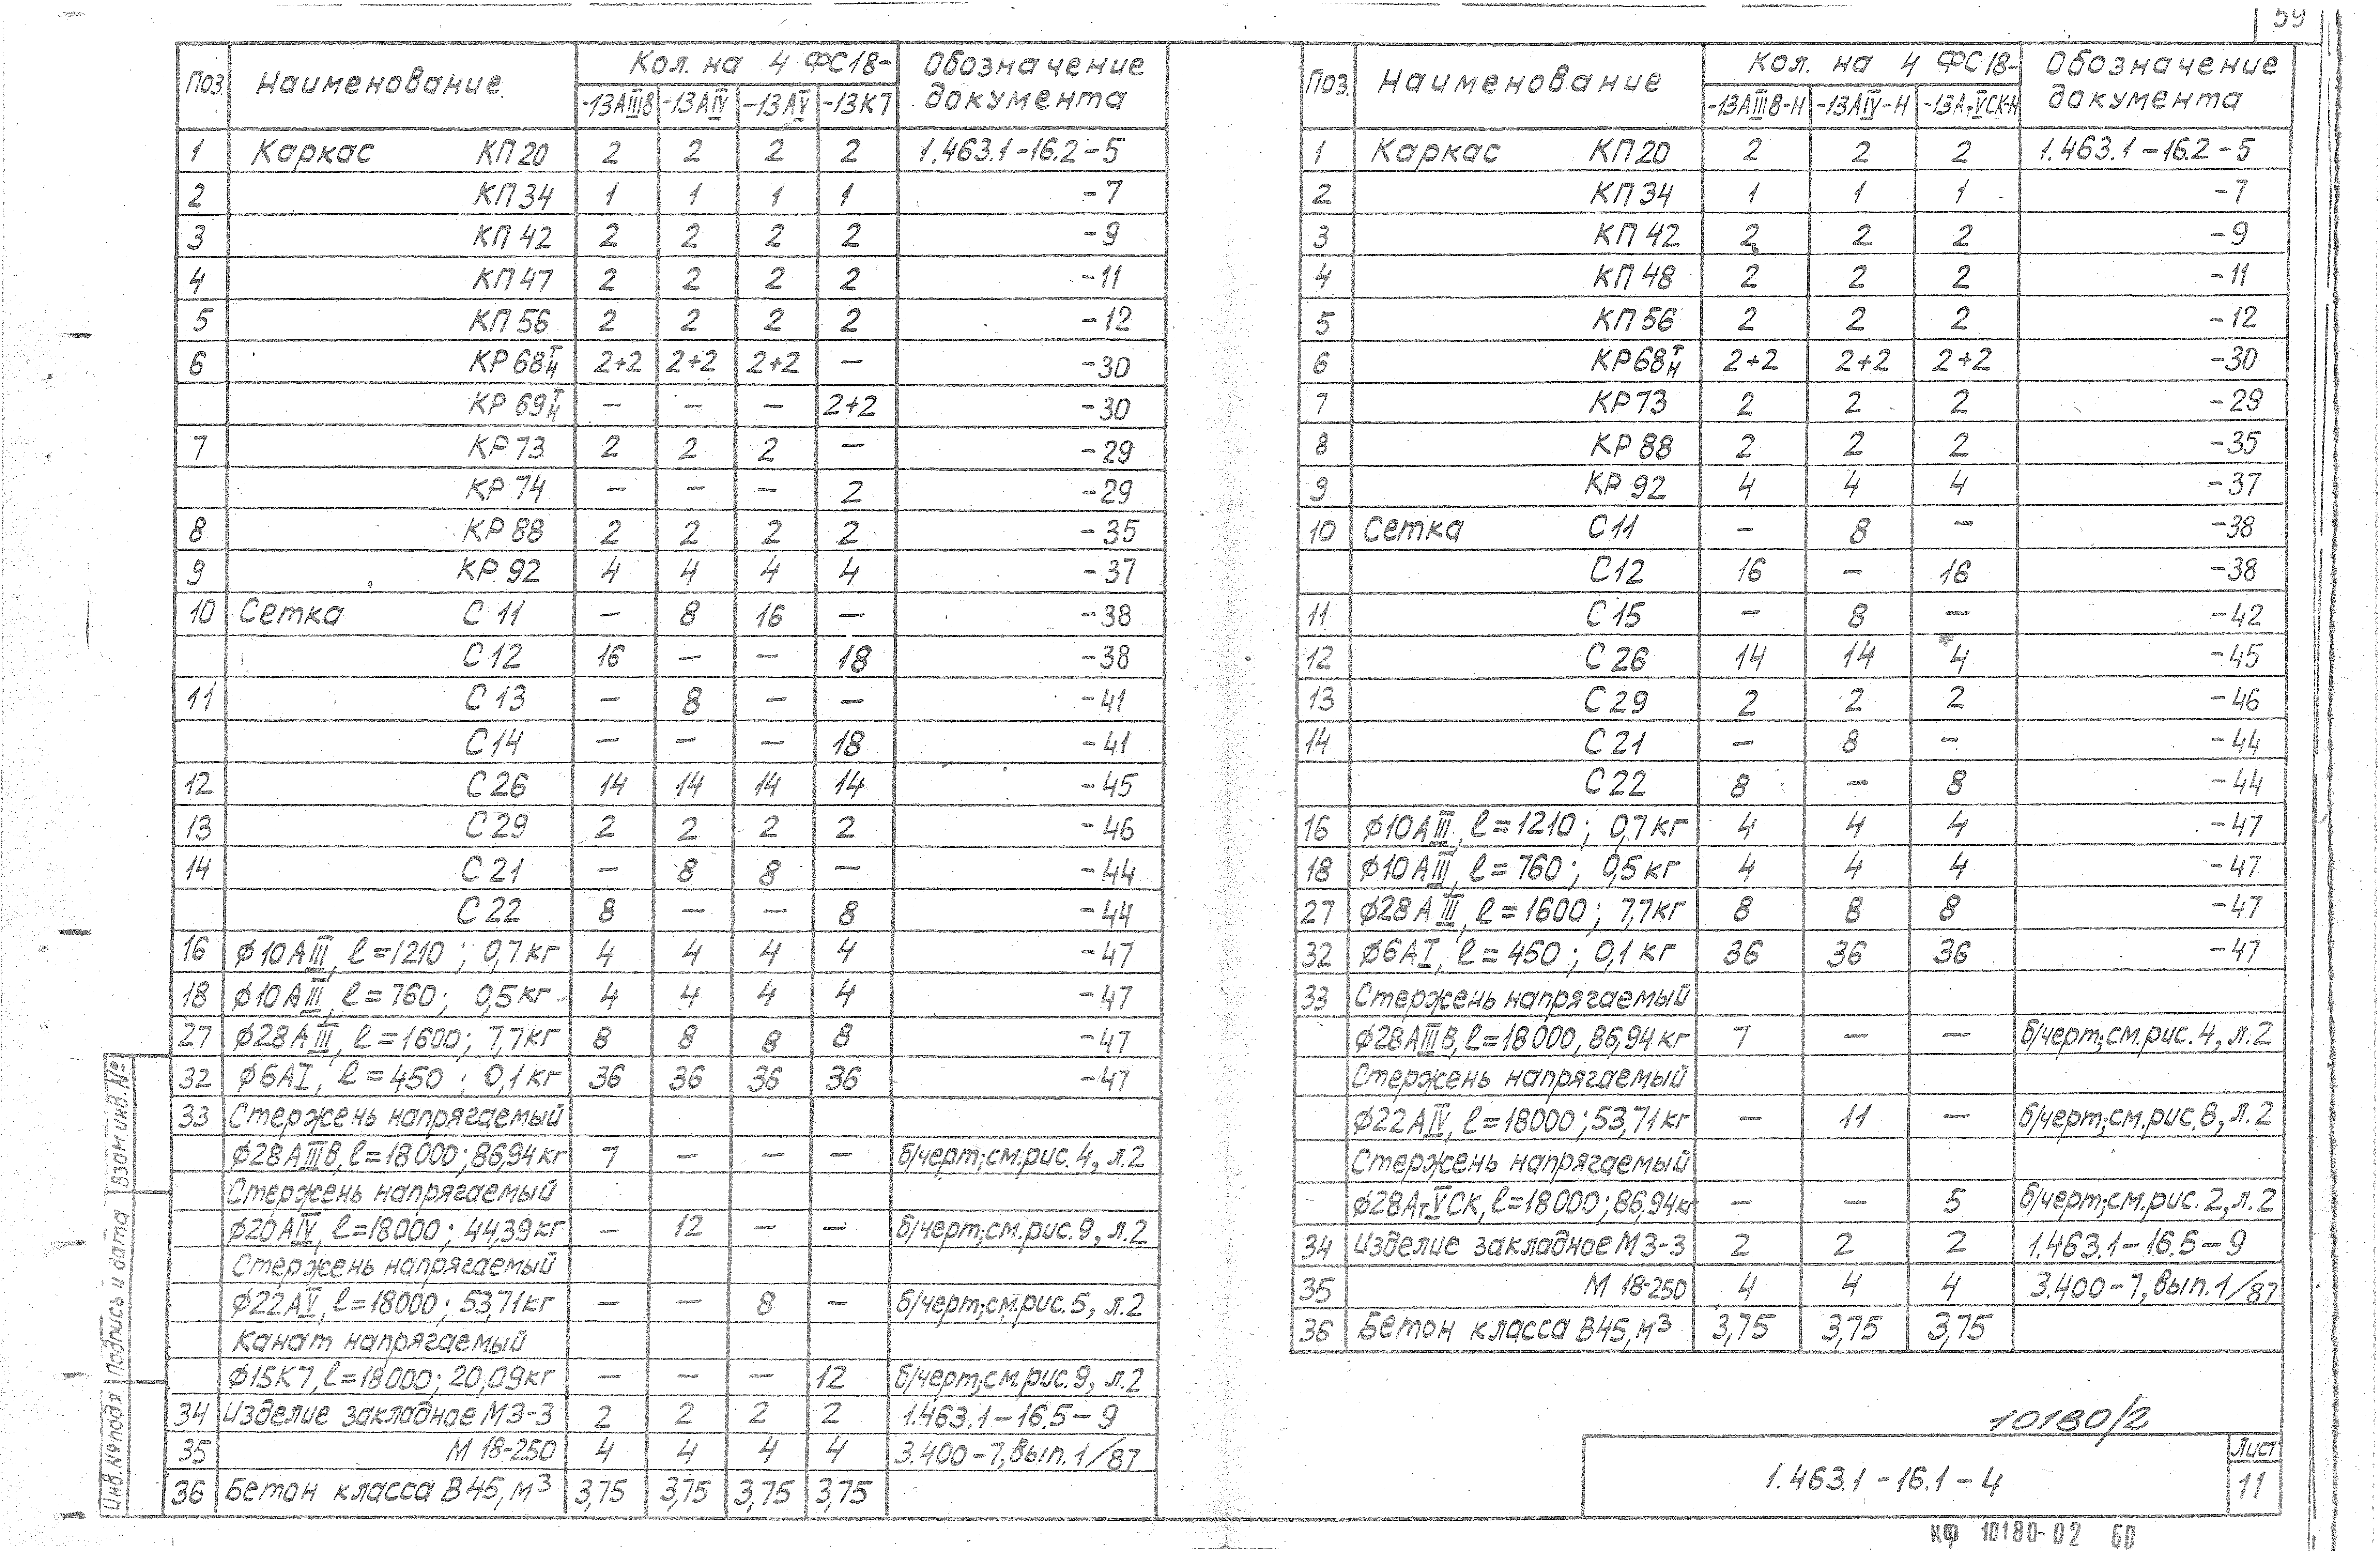 59
Поз. Наименование Кол. на 4 ФС18- Обозначение документа
-13АIIIВ -13АIV -13АV -13К7
1 Каркас КП20 2 2 2 2 1.463.1-16.2-5
2 КП34 1 1 1 1 -7
3 КП42 2 2 2 2 -9
4 КП47 2 2 2 2 -11
5 КП56 2 2 2 2 -12
6 КР68Т/Н 2+2 2+2 2+2 — -30
КР69Т/Н — — — 2+2 -30
7 КР73 2 2 2 — -29
КР74 — — — 2 -29
8 КР88 2 2 2 2 -35
9 КР92 4 4 4 4 -37
10 Сетка С11 — 8 16 — -38
С12 16 — — 18 -38
11 С13 — 8 — — -41
С14 — — — 18 -41
12 С26 14 14 14 14 -45
13 С29 2 2 2 2 -46
14 С21 — 8 8 — -44
С22 8 — — 8 -44
16 φ10АIII, ℓ=1210; 0,7кг 4 4 4 4 -47
18 φ10АIII, ℓ=760; 0,5кг 4 4 4 4 -47
27 φ28АIII, ℓ=1600; 7,7кг 8 8 8 8 -47
32 φ6АI, ℓ=450; 0,1кг 36 36 36 36 -47
33 Стержень напрягаемый
φ28АIIIВ, ℓ=18000; 86,94кг 7 — — — б/черт; см.рис.4, л.2
Стержень напрягаемый
φ20АIV, ℓ=18000; 44,39кг — 12 — — б/черт; см.рис.9, л.2
Стержень напрягаемый
φ22АV, ℓ=18000; 53,71кг — — 8 — б/черт; см.рис.5, л.2
Канат напрягаемый
φ15К7, ℓ=18000; 20,09кг — — — 12 б/черт; см.рис.9, л.2
34 Изделие закладное МЗ-3 2 2 2 2 1.463.1-16.5-9
35 М18-250 4 4 4 4 3.400-7, вып.1/87
36 Бетон класса В45, м³ 3,75 3,75 3,75 3,75
Инв.№ подл. Подпись и дата Взам инв.№
Поз. Наименование Кол. на 4 ФС18- Обозначение документа
-13АIIIВ-Н -13АIV-Н -13АтVСК-Н
1 Каркас КП20 2 2 2 1.463.1-16.2-5
2 КП34 1 1 1 -7
3 КП42 2 2 2 -9
4 КП48 2 2 2 -11
5 КП56 2 2 2 -12
6 КР68Т/Н 2+2 2+2 2+2 -30
7 КР73 2 2 2 -29
8 КР88 2 2 2 -35
9 КР92 4 4 4 -37
10 Сетка С11 — 8 — -38
С12 16 — 16 -38
11 С15 — 8 — -42
12 С26 14 14 4 -45
13 С29 2 2 2 -46
14 С21 — 8 — -44
С22 8 — 8 -44
16 φ10АIII, ℓ=1210; 0,7кг 4 4 4 -47
18 φ10АIII, ℓ=760; 0,5кг 4 4 4 -47
27 φ28АIII, ℓ=1600; 7,7кг 8 8 8 -47
32 φ6АI, ℓ=450; 0,1кг 36 36 36 -47
33 Стержень напрягаемый
φ28АIIIВ, ℓ=18000, 86,94кг 7 — — б/черт; см.рис.4, л.2
Стержень напрягаемый
φ22АIV, ℓ=18000; 53,71кг — 11 — б/черт; см.рис.8, л.2
Стержень напрягаемый
φ28АтVСК, ℓ=18000; 86,94кг — — 5 б/черт; см.рис.2, л.2
34 Изделие закладное МЗ-3 2 2 2 1.463.1-16.5-9
35 М18-250 4 4 4 3.400-7, вып.1/87
36 Бетон класса В45, м³ 3,75 3,75 3,75
10180/2
1.463.1-16.1-4 Лист 11
КФ 10180-02 60